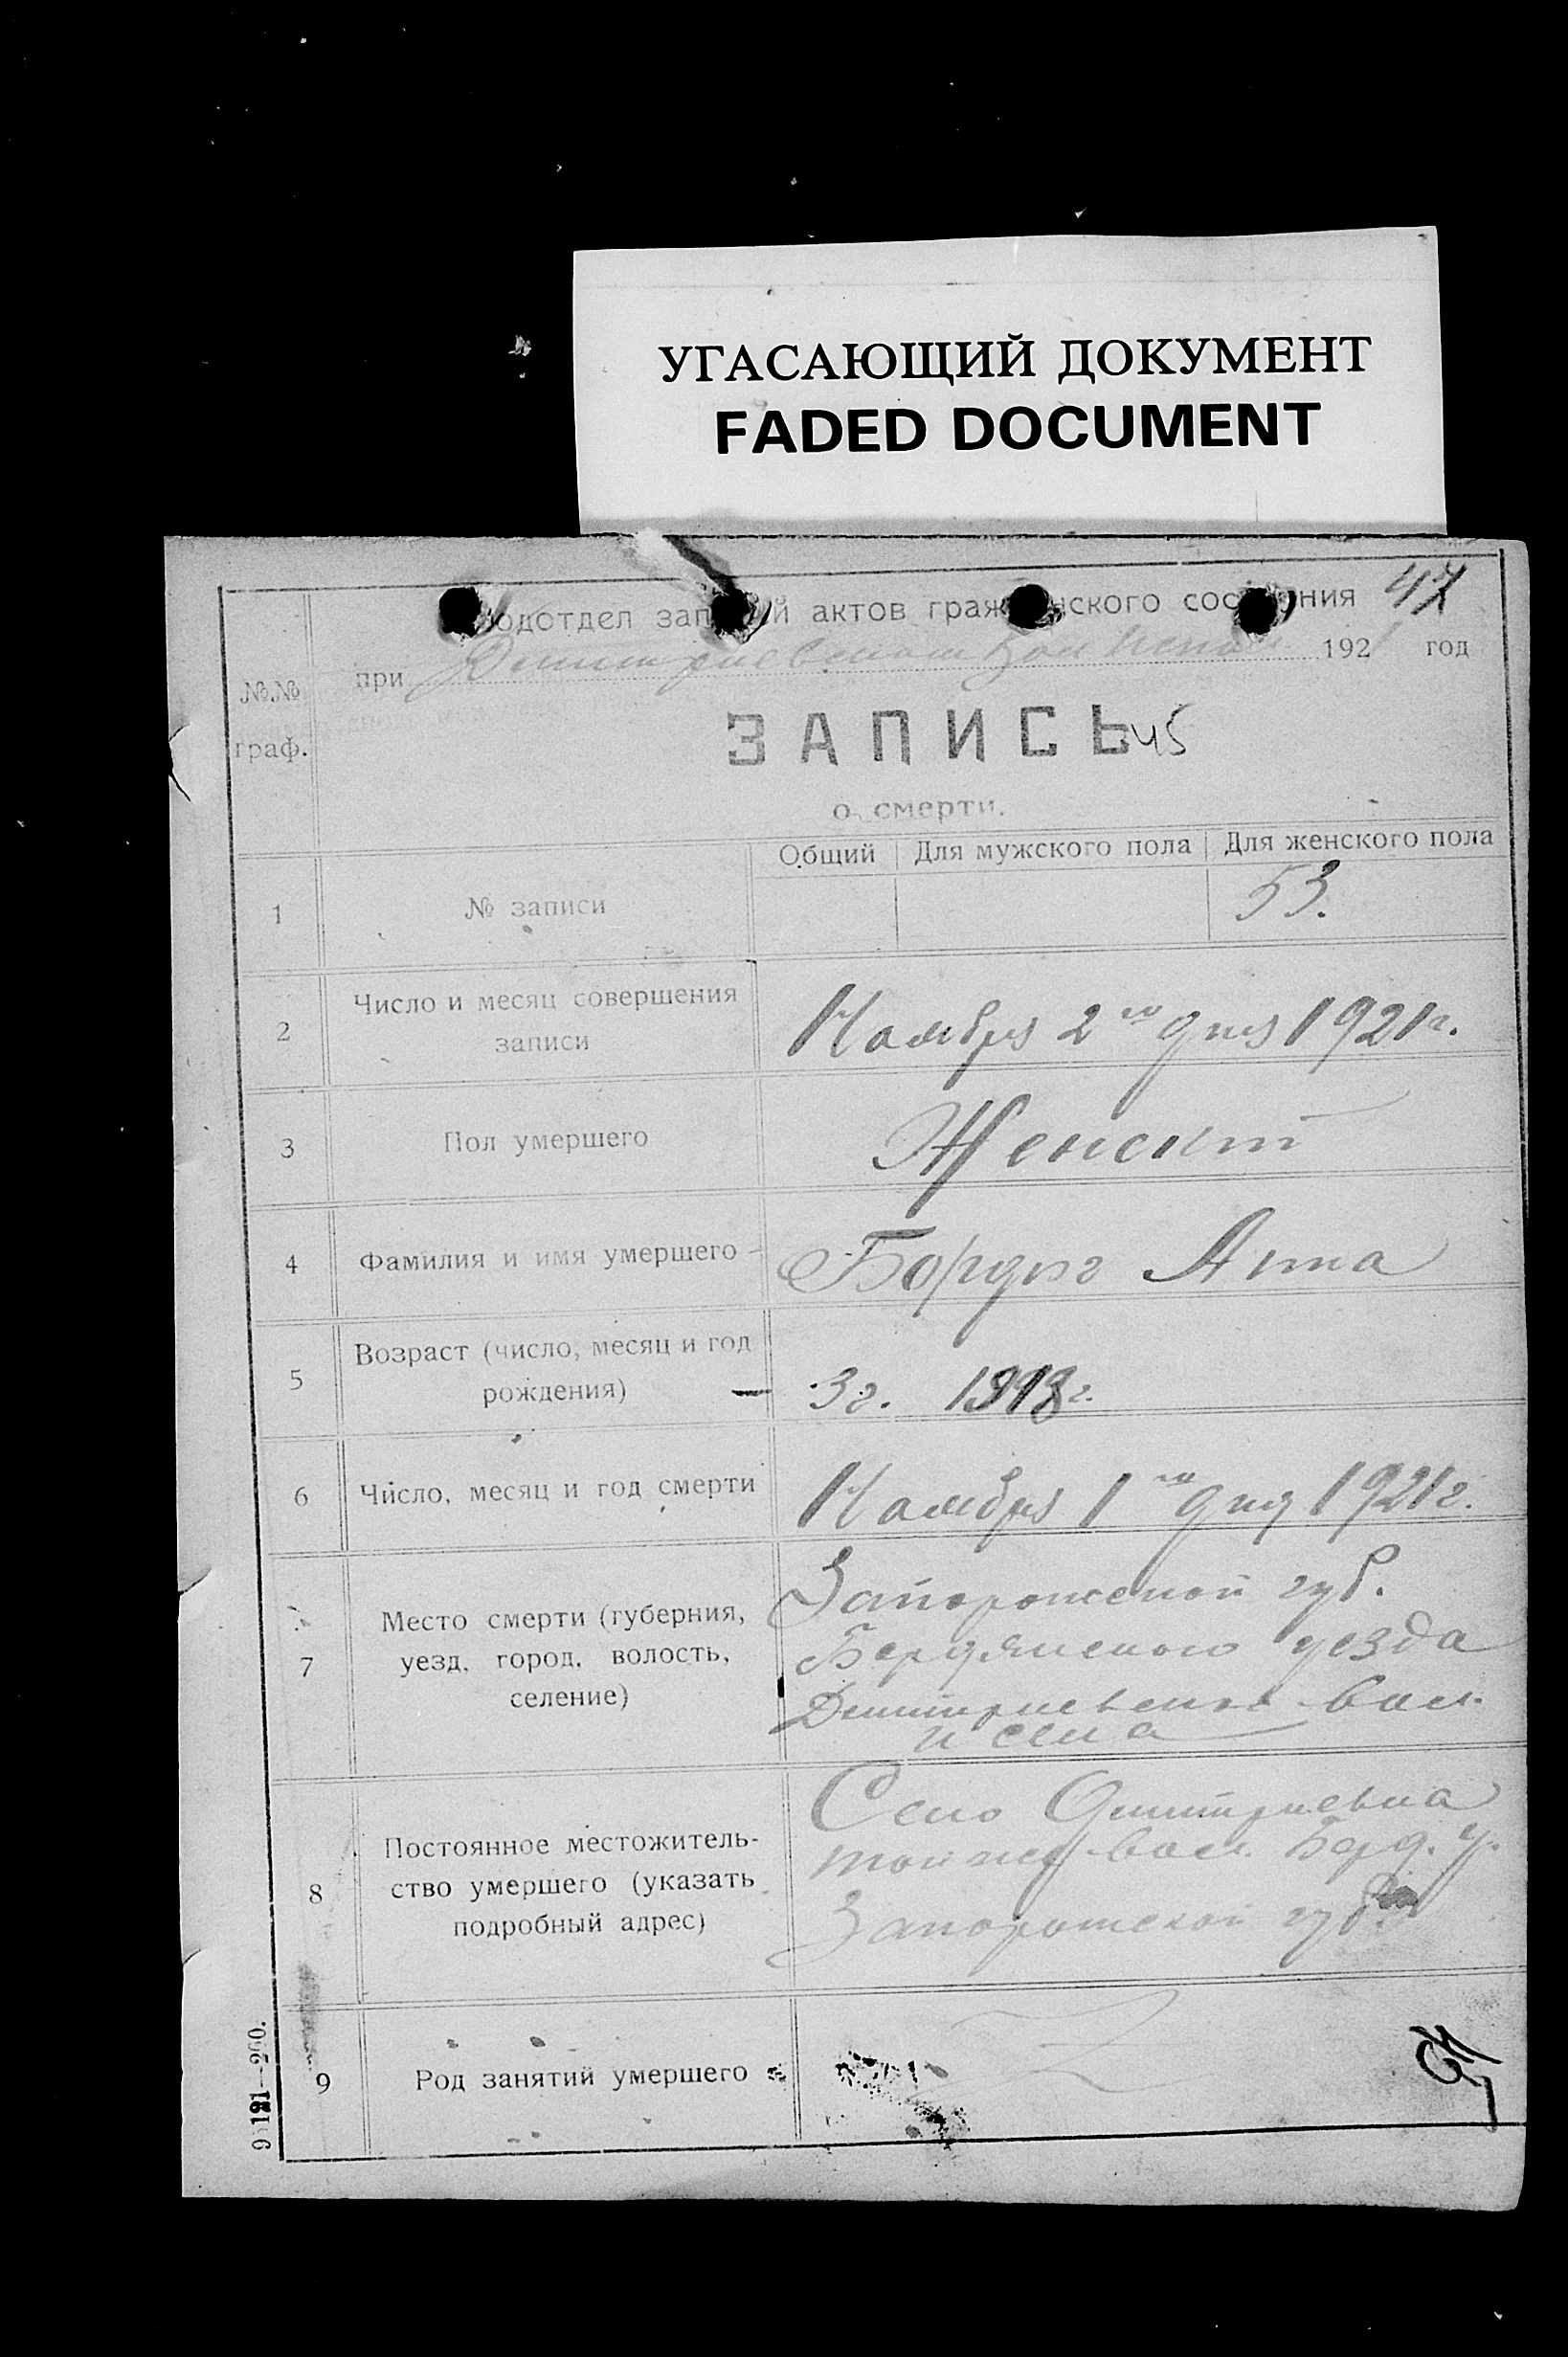 УГАСАЮЩИЙ ДОКУМЕНТ
FADED DOCUMENT
Подотдел записей актов гражданского состояния 47
при Дмитриевском Вол Исполк 1921 год
№№ граф.
ЗАПИСЬ 45
о смерти.
Общий Для мужского пола Для женского пола
1 № записи 53.
2 Число и месяц совершения
записи
Ноября 2го дня 1921г.
3 Пол умершего Женский
4 Фамилия и имя умершего Анна
5 Возраст (число, месяц и год
рождения)
3г. 1918г.
6 Число, месяц и год смерти Ноября 1го дня 1921г.
7 Место смерти (губерния,
уезд, город, волость,
селение)
Запорожской губ.
Бердянского уезда
Дмитриевка вол.
и села
8 Постоянное местожитель-
ство умершего (указать
подробный адрес)
Село Дмитриевка
той же вол. Берд. у.
Запорожской губ.
9 Род занятий умершего